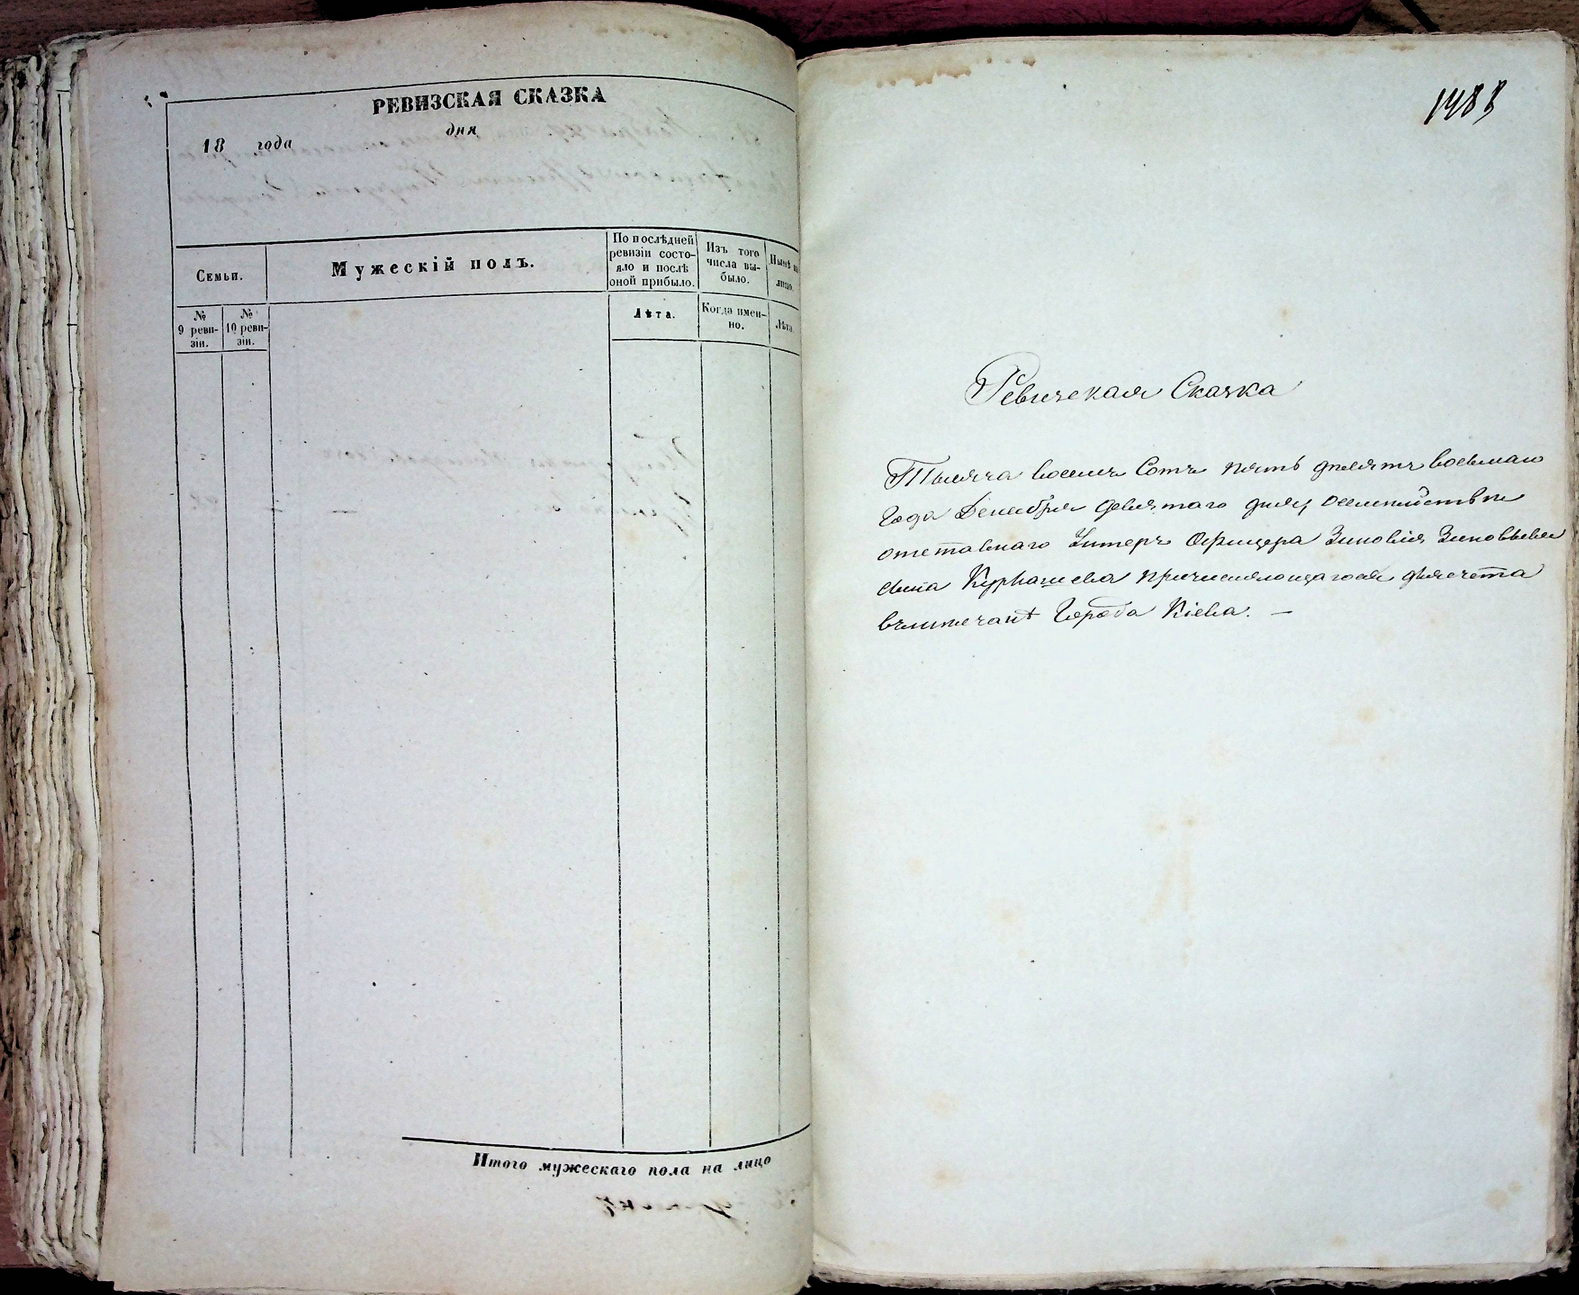 РЕВИЗСКАЯ СКАЗКА
18 года дня
Семьи.
Мужескій полъ.
По послѣдней ревизіи состо-
яло и послѣ оной прибыло.
Изъ того числа вы-
было.
№ 9 реви-
зіи.
№ 10 реви-
зіи.
Лѣта.
Когда имен-
но.
Лѣта.
Итого мужескаго пола на лицо
1488
Ревизская Сказка
Тысяча восемь Сотъ пять десятъ восьмаго
Года Декабря девятаго дня, о семействѣ
отставнаго Унтеръ Офицера Зиновія Зиновьева
сына причисляющагося для счета
Города Кіева. —